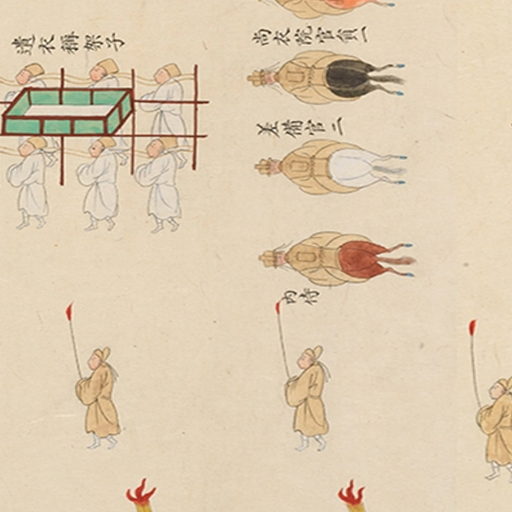 遺衣稱架子
尚衣院官員一
差備官二
內侍